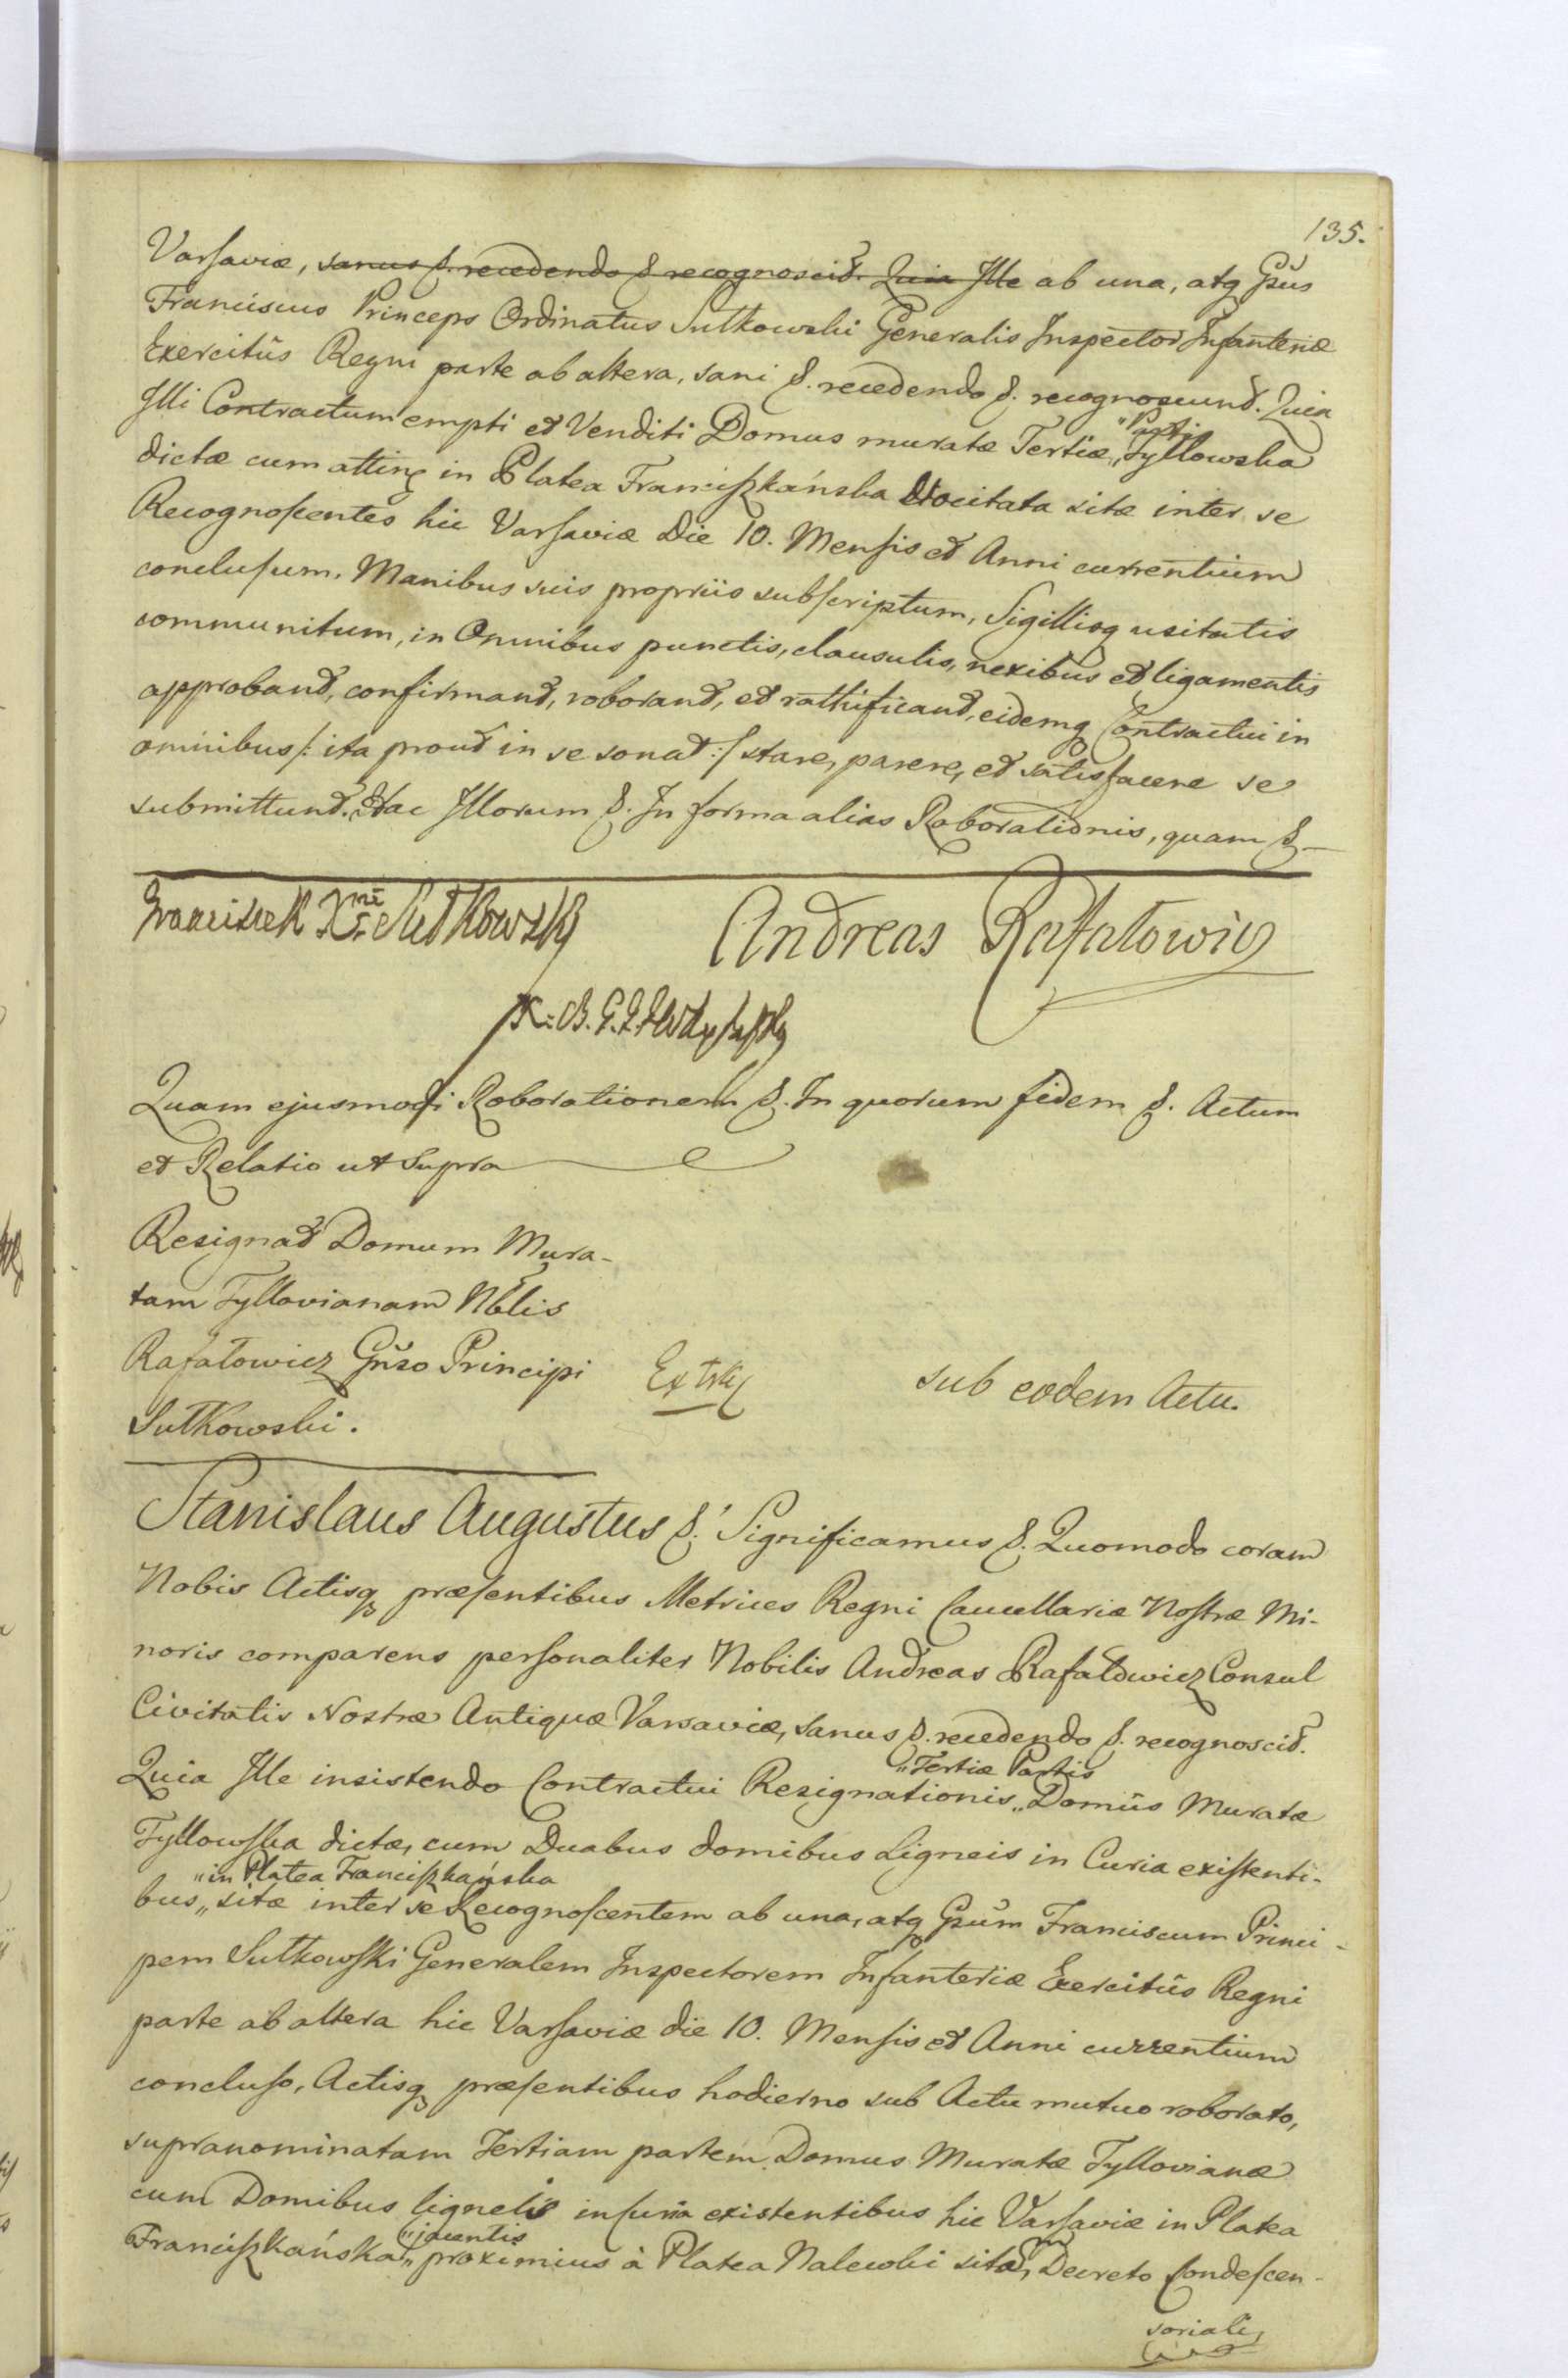 135.
Varsaviæ, sanus &. recedendo &. recognoscit. Quia Ille ab una, atq Gsūs
Franciscus Princeps Ordinatus Sułkowski Generalis Inspector Infanteriæ
Exercitûs Regni parte ab altera, sani &. recedendo &. recognoscunt. Quia
Illi Contractum empti et Venditi Domus muratæ Tertiæ „Partis Tyllowska
dictæ cum atting in Platea Franciszkańska Vocitata sitæ inter se
Recognoscentes hic Varsaviæ Die 10. Mensis et Anni currentium
conclusum, Manibus suis propriis subscriptum, Sigillisq usitatis
communitum, in Omnibus punctis, clausulis, nexibus et ligamentis
approband, confirmand, roborand, et rathificand, eidemq Contractui in
omnibus /: ita prout in se sonat :/ stare, parere, et satisfacere se
submittunt. Hac Illorum &. In forma alias Roborationis, quam &
Franciszek X. Sułkowski
Andreas Rafałowicz
Quam ejusmodi Roborationem &. In quorum fidem &. Actum
et Relatio ut Supra
Resignat Domum Mura-
tam Tyllovianam Nblis
Rafałowicz Gnso Principi
Sułkowski.
Extr
sub eodem Actu.
Stanislaus Augustus &. Significamus &. Quomodo coram
Nobis Actisq præsentibus Metrices Regni Cancellariæ Nostræ Mi-
noris comparens personaliter Nobilis Andreas Rafałowicz Consul
Civitatis Nostræ Antiquæ Varsaviæ, sanus &. recedendo &. recognoscit.
Quia Ille insistendo Contractui Resignationis „Tertiæ Partis „Domûs Muratæ
Tyllowska dictæ, cum Duabus domibus Ligneis in Curia existenti-
bus „in Platea Franciszkańska „sitæ inter se Recognoscentem ab una, atq Gsūm Franciscum Princi-
pem Sułkowski Generalem Inspectorem Infanteriæ Exercitûs Regni
parte ab altera hic Varsaviæ die 10. Mensis et Anni currentium
concluso, Actisq præsentibus hodierno sub Actu mutuo roborato,
supranominatam Tertiam partem Domus Muratæ Tyllovianæ
cum Domibus ligneis in Curia existentibus hic Varsaviæ in Platea
Franciszkańska „jacentis „proximius à Platea Nalewki sitam, Decreto Condescen-
soriali,